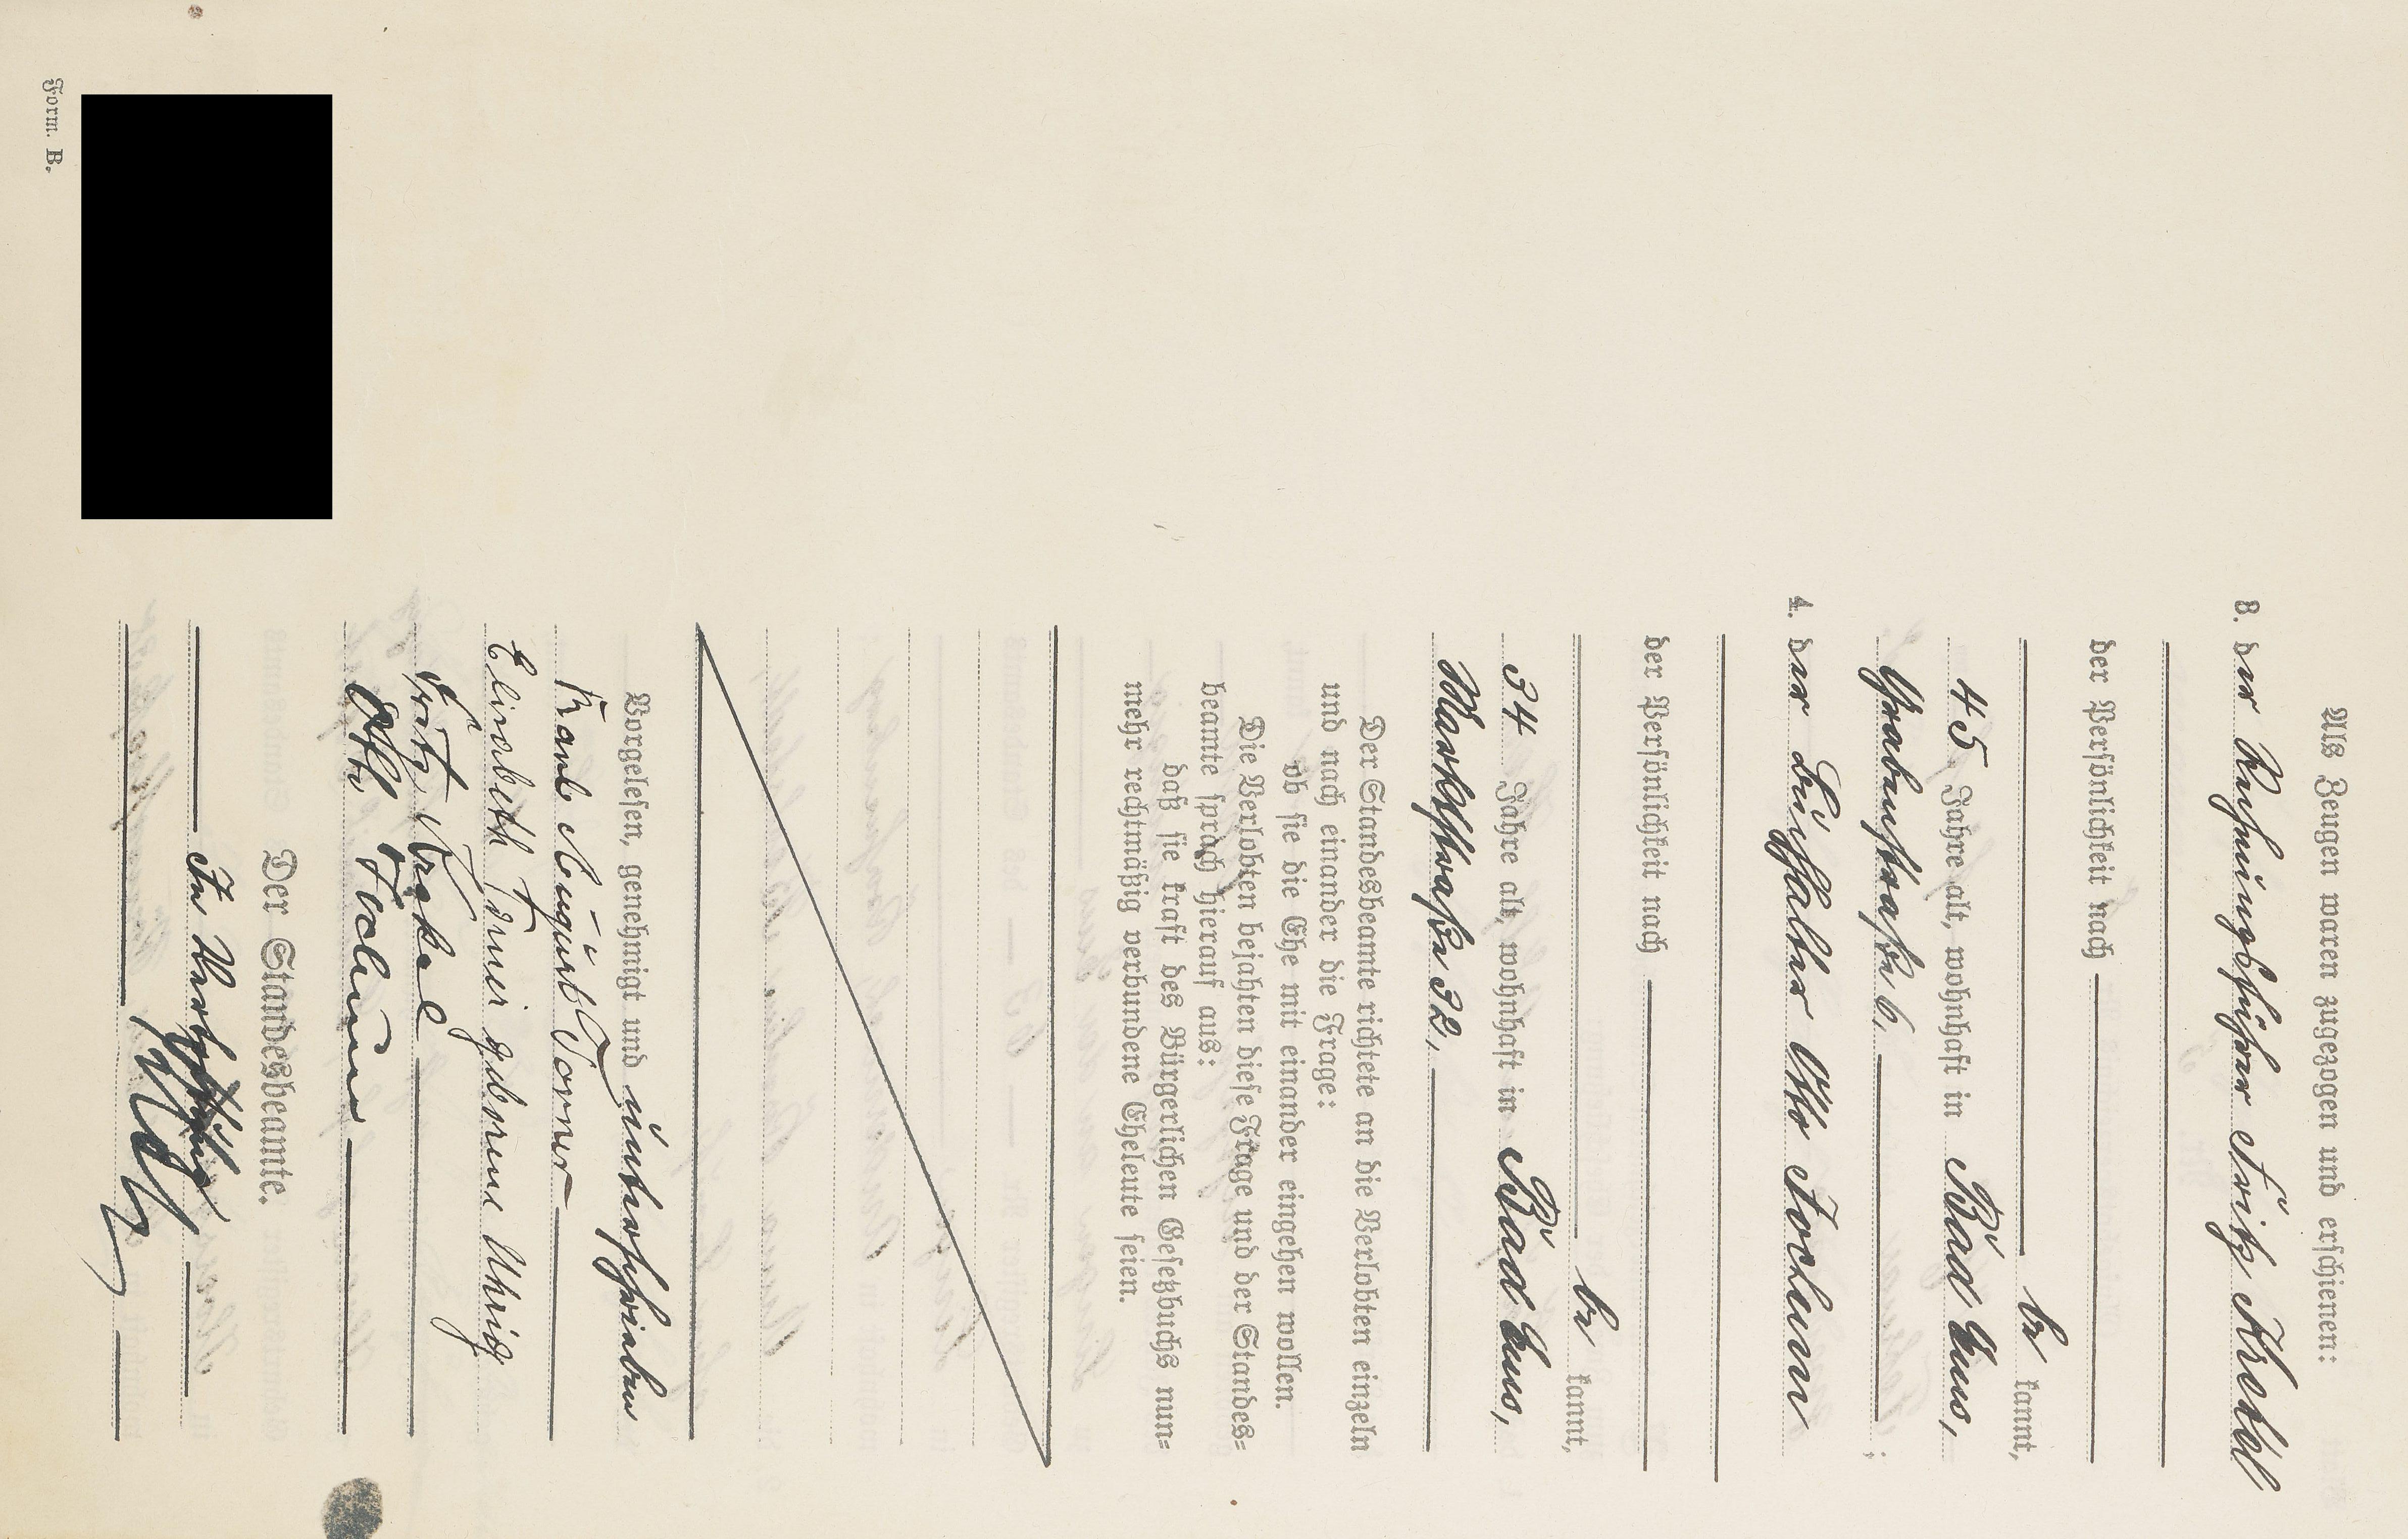 Als Zeugen waren zugezogen und erschienen:
3. der Rechnungsführer Fritz Krekel
der Persönlichkeit nach
be kannt,
45 Jahre alt, wohnhaft in Bad Ems,
Grabenstraße 6, ;
4. der Buchhalter Otto Jochum
der Persönlichkeit nach
be kannt,
34 Jahre alt, wohnhaft in Bad Ems,
Marktstraße 32,
Der Standesbeamte richtete an die Verlobten einzeln
und nach einander die Frage:
ob sie die Ehe mit einander eingehen wollen.
Die Verlobten bejahten diese Frage und der Standes-
beamte sprach hierauf aus:
daß sie kraft des Bürgerlichen Gesetzbuchs nun-
mehr rechtmäßig verbundene Eheleute seien.
Vorgelesen, genehmigt und unterschrieben
Karl August
Elisabeth geborene Uhrig
Fritz Krekel
Otto Jochum
Der Standesbeamte.
In Vertretung
Form. B.